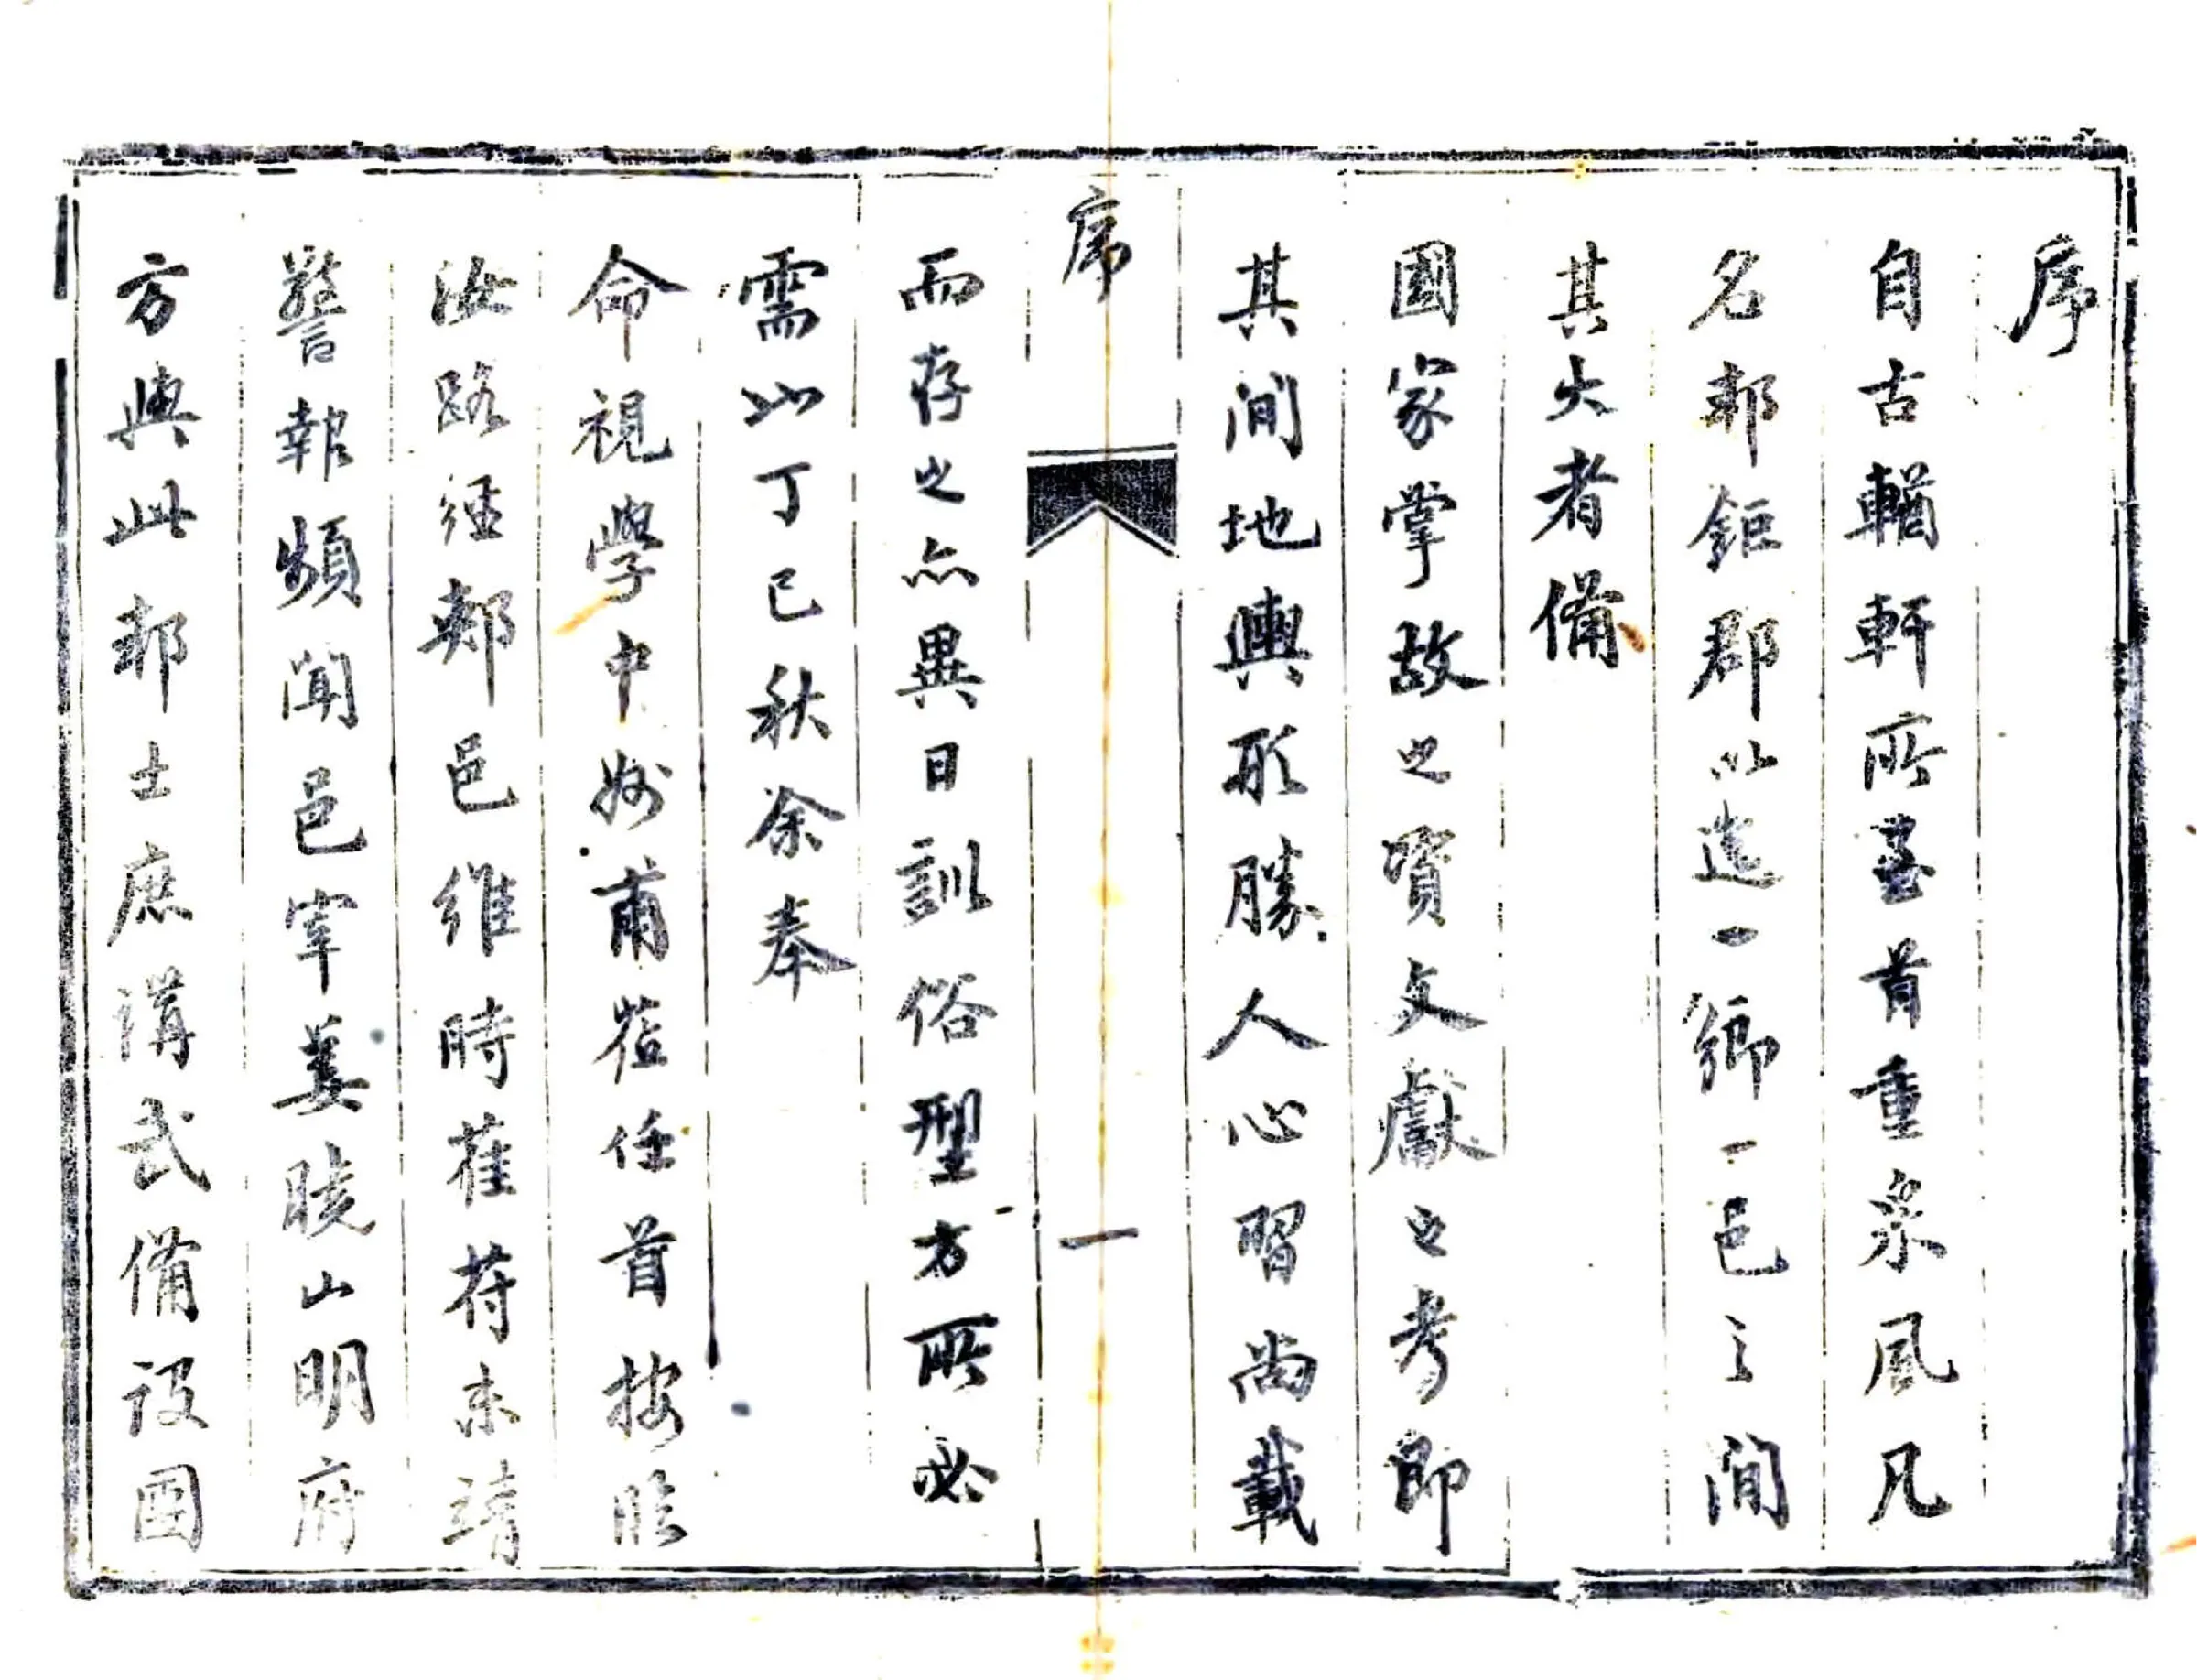 序
自古輶軒所蒞首重采風凡
名邦鉅郡以迄一鄉一邑之間
其大者備
國家掌故之資文獻之考即
其間地輿形勝人心習尚載
序
一
而存之亦異日訓俗型方所必
需也丁巳秋余奉
命視學中州甫蒞任首按臨
汝路徑郟邑維時萑苻未靖
警報頻聞邑宰姜曉山明府
方與此邦士庶講武備設團